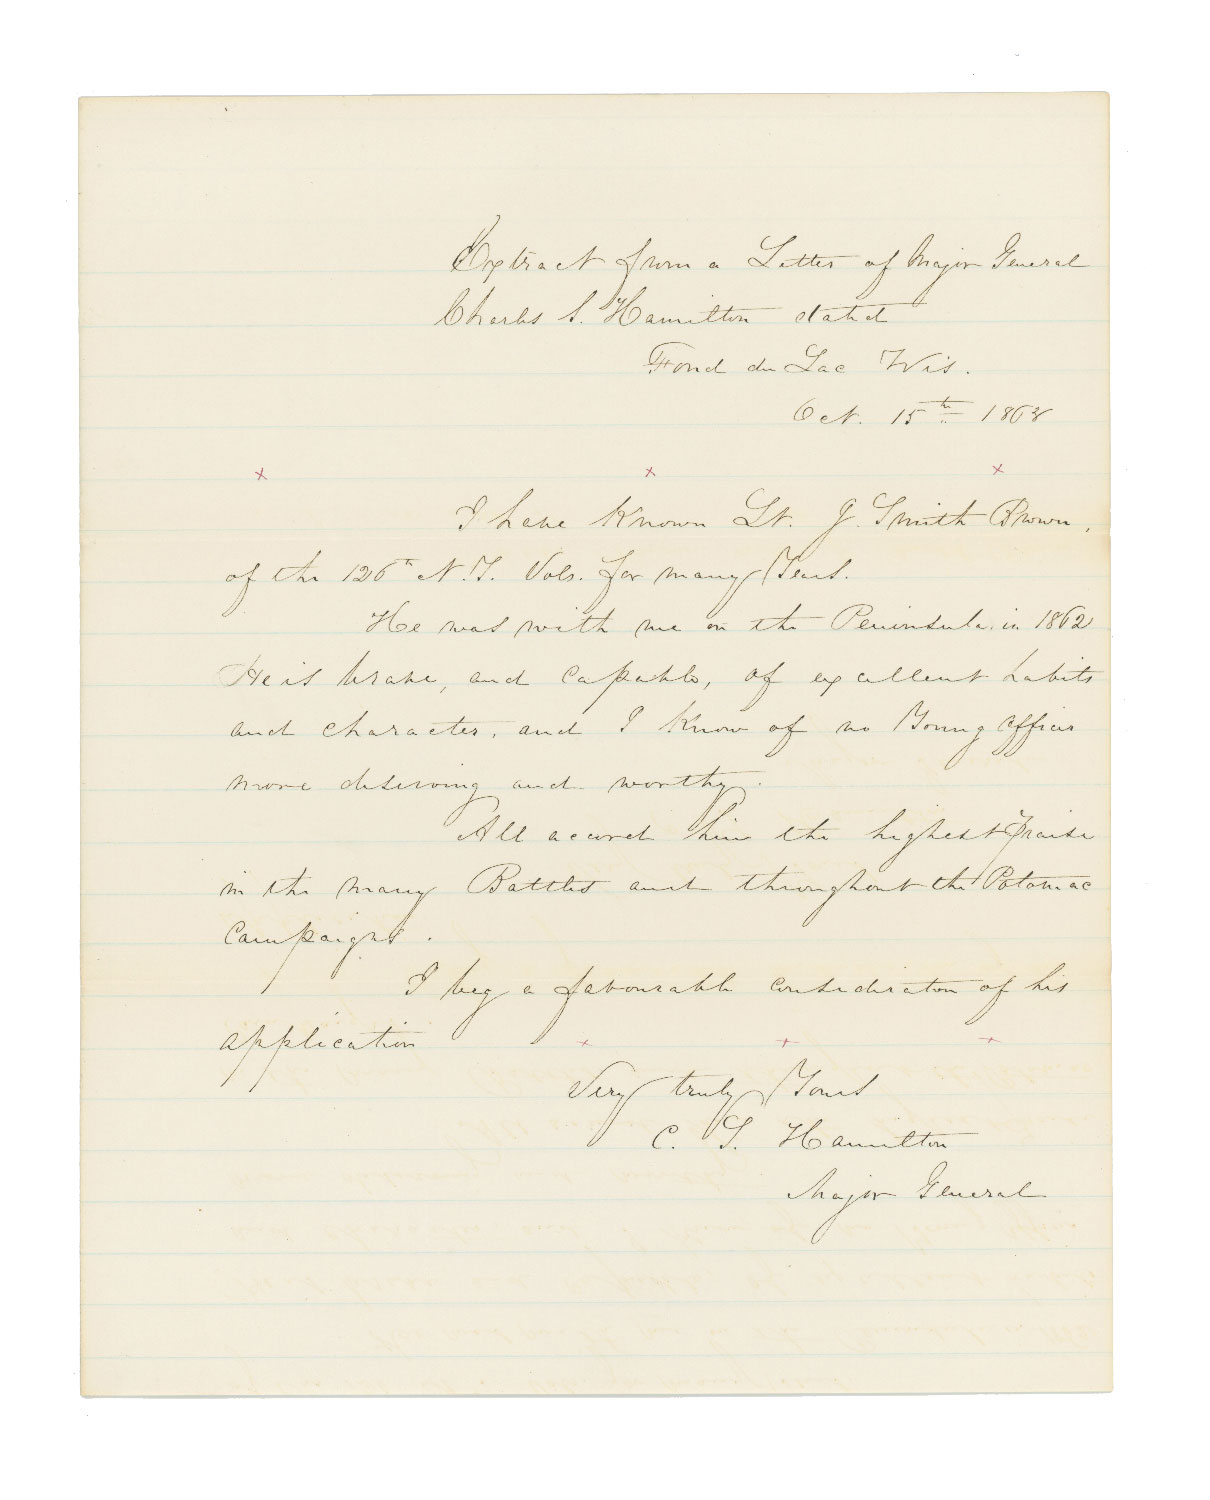 Extract from a Letter of Major General
Charles S. Hamilton dated
Fond du Lac Wis.
Oct. 15th 1868
x x x
I have Known Lt. J. Smith Brown,
of the 126th N.Y. Vols. for many Years.
He was with me on the Peninsula in 1862
He is brave, and capable, of excellent habits
and character, and I Know of no Young officer
more deserving and worthy.
All accord him the highest Praise
in the many Battles and throughout the Potomac
Campaigns.
I beg a favourable consideration of his
application
x x x
Very truly Yours
C. S. Hamilton
Major General